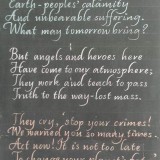 Earth-peoples' calamity
And unbearable suffering.
What may tomorrow bring?
But angels and heroes here
Have come to our atmosphere;
They work and teach to pass
Truth to the way-lost mass.
They cry, stop your crimes!
We warned you so many times.
Act now! It is not too late
To change your planet's